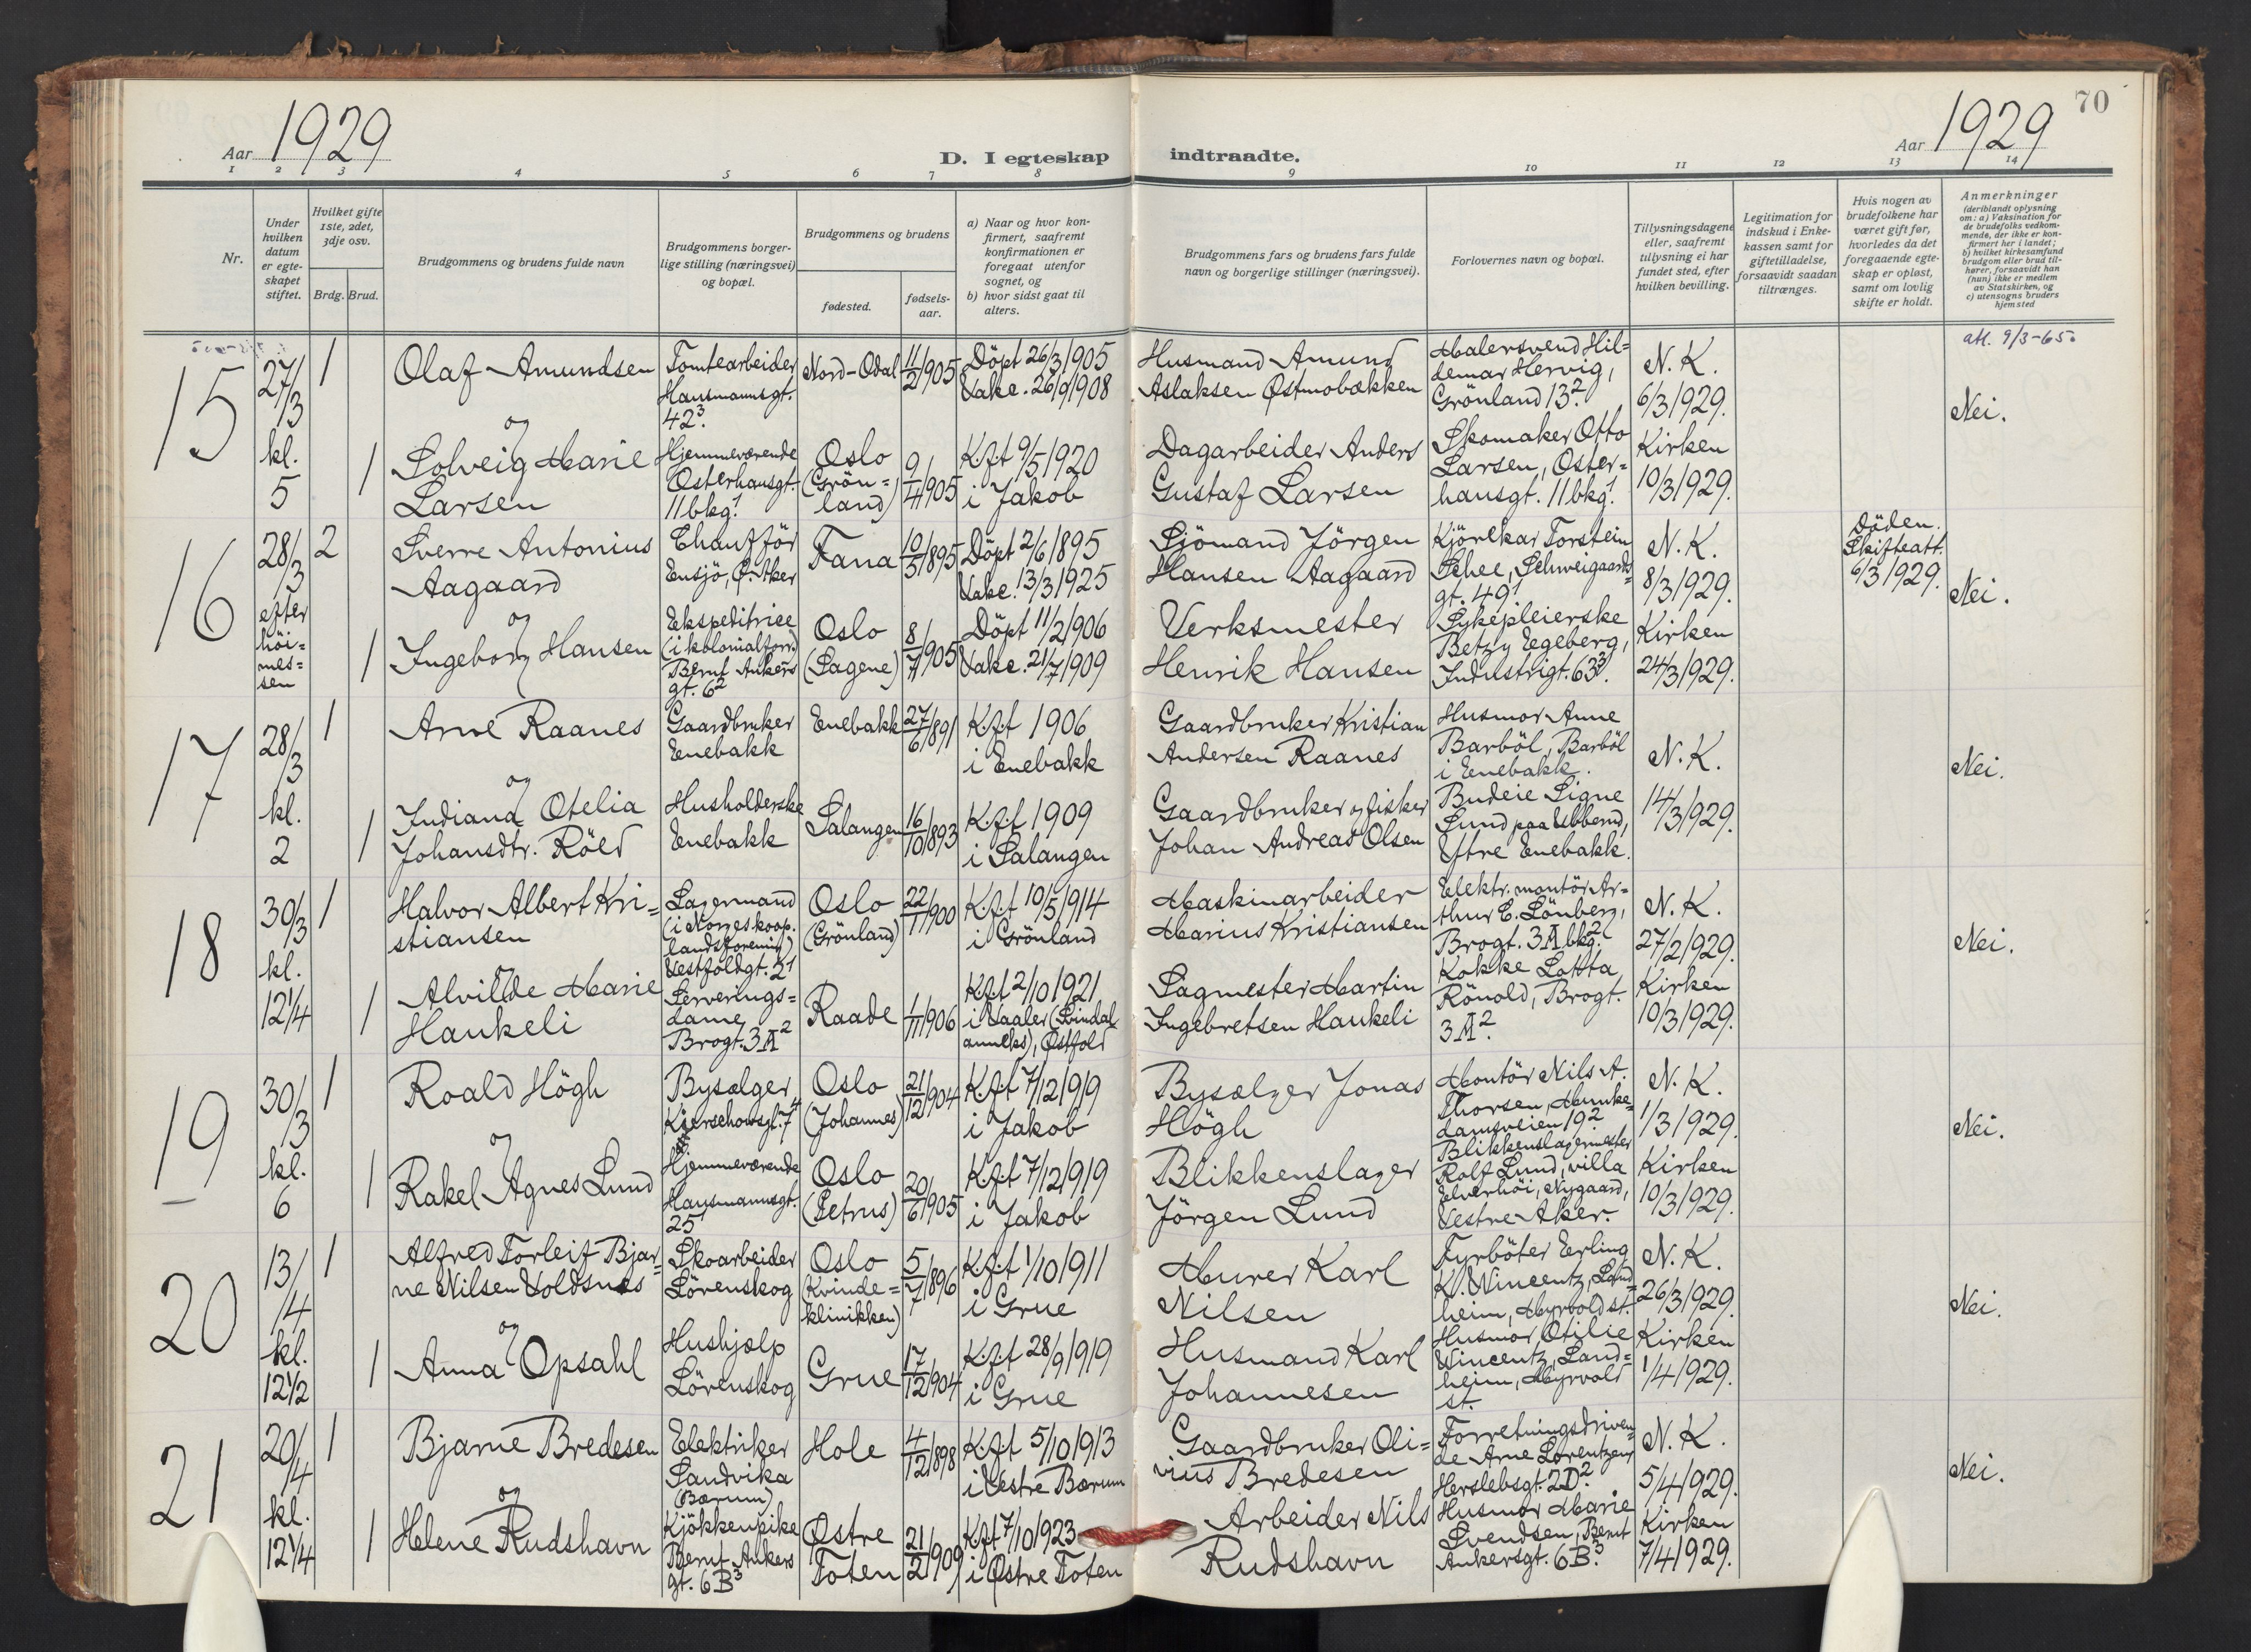 70
Aar 1929
D. I egteskap indtraadte.
Aar 1929
1 2 3 4 5 6 7 8 9 10 11 12 13 14
Nr.
Under hvilken datum er egteskapet stiftet.
Hvilket gifte 1ste, 2det, 3dje osv.
Brdg. Brud.
Brudgommens og brudens fulde navn
Brudgommens borgerlige stilling (næringsvei) og bopæl.
Brudgommens og brudens
fødested.
fødselsaar.
a) Naar og hvor konfirmert, saafremt konfirmationen er foregaat utenfor sognet, og
b) hvor sidst gaat til alters.
Brudgommens fars og brudens fars fulde navn og borgerlige stillinger (næringsvei).
Forlovernes navn og bopæl.
Tillysningsdagene eller, saafremt tillysning ei har fundet sted, efter hvilken bevilling.
Legitimation for indskud i Enkekassen samt for giftetilladelse, forsaavidt saadan tiltrænges.
Hvis nogen av brudefolkene har været gift før, hvorledes da det foregaaende egteskap er opløst, samt om lovlig skifte er holdt.
Anmerkninger
(deriblandt oplysning om: a) Vaksination for de brudefolks vedkommende, der ikke er konfirmert her i landet; b) hvilket kirkesamfund brudgom eller brud tilhører, forsaavidt han (hun) ikke er medlem av Statskirken, og c) utensogns bruders hjemsted
15
27/3
kl.
5
1
Olaf Amundsen
Tomtearbeider
Hausmannsgt.
42³.
Nord-Odal
11/2 1905
Döpt 26/3 1905
Vakc. 26/9 1908
Husmand Amund
Aslaksen Østmobækken
Malersvend Hil=
demar Hervig,
Grönland 13².
N. K.
6/3 1929.
att. 9/3-65.
Nei.
og
1
Solveig Marie
Larsen
Hjemmeværende
Osterhausgt.
11 bkg¹.
Oslo
(Grön=
land)
9/4 1905
Kft 9/5 1920
i Jakob
Dagarbeider Anders
Gustaf Larsen
Skomaker Otto
Larsen, Oster=
hausgt. 11 bkg¹.
Kirken
10/3 1929.
16
28/3
efter
höi=
mes=
sen
2
Sverre Antonius
Aagaard
Chaufför
Ensjö, Ö. Aker
Fana
10/5 1895
Döpt 2/6 1895
Vakc. 13/3 1925
Sjömand Jörgen
Hansen Aagaard
Kjörekar Torstein
Schee, Schweigaards=
gt. 49¹
N. K.
8/3 1929.
Döden.
Skifteatt.
6/3 1929.
Nei.
og
1
Ingeborg Hansen
Ekspeditrice
(i kolonialforr.)
Bernt Ankers
gt. 6²
Oslo
(Sagene)
8/7 1905
Döpt 11/2 1906
Vakc. 21/7 1909
Verksmester
Henrik Hansen
Sykepleierske
Betzy Egeberg,
Industrigt. 63³.
Kirken
24/3 1929.
17
28/3
kl.
2
1
Arne Raanes
Gaardbruker
Enebakk
Enebakk
27/6 1891
Kft 1906
i Enebakk
Gaardbruker Kristian
Andersen Raanes
Husmor Anne
Barböl, Barböl
i Enebakk.
N. K.
14/3 1929.
Nei.
og
1
Indiana Otelia
Johansdtr. Röed
Husholderske
Enebakk
Salangen
16/10 1893
Kft 1909
i Salangen
Gaardbruker og fisker
Johan Andreas Olsen
Budeie Signe
Lund paa Ubberud,
Ytre Enebakk.
18
30/3
kl.
12¼
1
Halvor Albert Kri=
stiansen
Lagermand
(i Norges koop.
landsforening)
Vestfoldgt. 2¹
Oslo
(Grönland)
22/1 1900
Kft 10/5 1914
i Grönland
Maskinarbeider
Marius Kristiansen
Elektr. montör Ar=
thur E. Lönberg,
Brogt. 3A bkg².
N. K.
27/2 1929.
Nei.
og
1
Alvilde Marie
Haukeli
Serverings=
dame
Brogt. 3A²
Raade
1/11 1906
Kft 2/10 1921
i Vaaler (Svindal
anneks), Østfold
Sagmester Martin
Ingebretsen Haukeli
Kokke Lotta
Rönold, Brogt.
3A².
Kirken
10/3 1929.
19
30/3
kl.
6
1
Roald Högh
Bysælger
Kjerschowsgt. 7⁴
Oslo
(Johannes)
21/12 1904
Kft 7/12 1919
i Jakob
Bysælger Jonas
Högh
Montör Nils A.
Thorsen, Munke=
damsveien 19².
N. K.
1/3 1929.
Nei.
og
1
Rakel Agnes Lund
Hjemmeværende
Hausmannsgt.
25¹
Oslo
(Petrus)
20/6 1905
Kft 7/12 1919
i Jakob
Blikkenslager
Jörgen Lund
Blikkenslagermester
Rolf Lund, villa
Elverhöi, Nygaard,
Vestre Aker.
Kirken
10/3 1929.
20
13/4
kl.
12½
1
Alfred Torleif Bjar=
ne Nilsen Voldsnes
Skoarbeider
Lörenskog
Oslo
(Kvinde=
klinikken)
5/7 1896
Kft 1/10 1911
i Grue
Murer Karl
Nilsen
Fyrböter Erling
K. Wincentz, Land=
heim, Myrvold st.
N. K.
26/3 1929.
Nei.
og
1
Anna Opsahl
Hushjælp
Lörenskog
Grue
17/12 1904
Kft 28/9 1919
i Grue
Husmand Karl
Johannesen
Husmor Otilie
Wincentz, Land=
heim, Myrvold
st.
Kirken
1/4 1929.
21
20/4
kl.
12¼
1
Bjarne Bredesen
Elektriker
Sandvika
(Bærum)
Hole
4/12 1898
Kft 5/10 1913
i Vestre Bærum
Gaardbruker Oli=
vius Bredesen
Forretningsdriven=
de Arne Lorentzen,
Herslebsgt. 2D².
N. K.
5/4 1929.
Nei.
og
1
Helene Rudshavn
Kjökkenpike
Bernt Ankers
gt. 6B³
Østre
Toten
21/2 1909
Kft 7/10 1923
i Østre Toten
Arbeider Nils
Rudshavn
Husmor Marie
Svendsen, Bernt
Ankersgt. 6B³.
Kirken
7/4 1929.